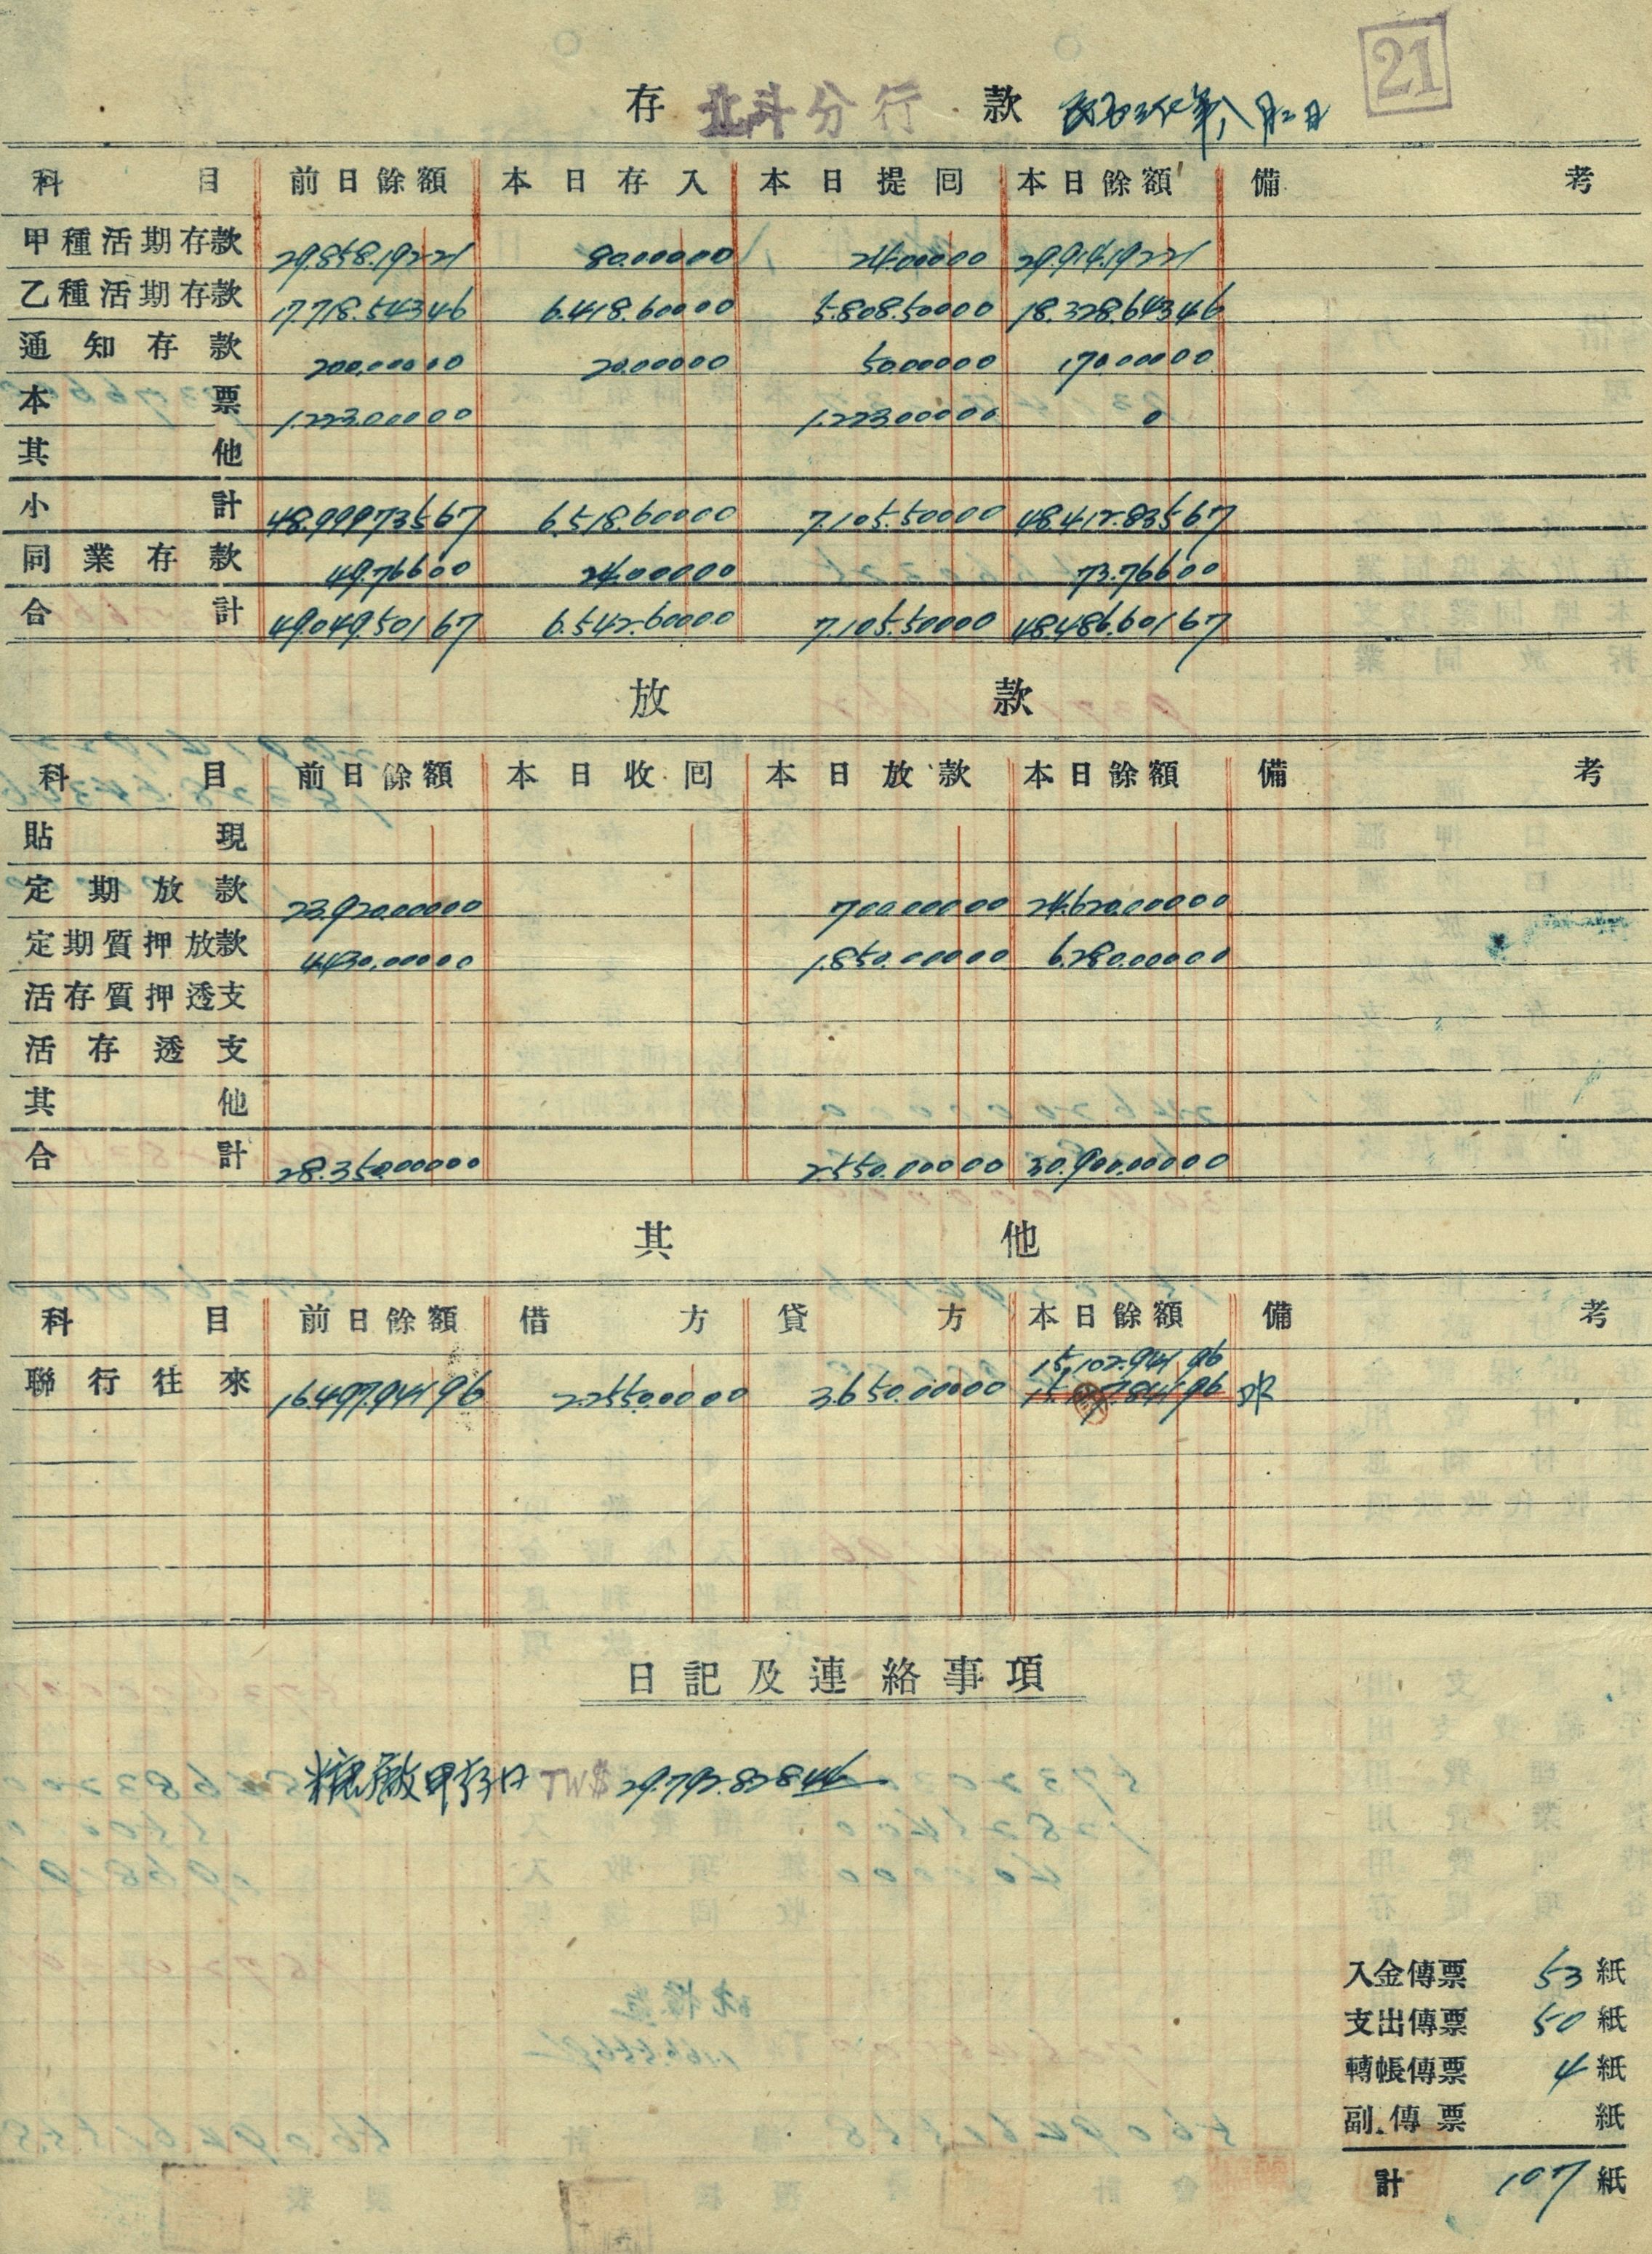 21
存 北斗分行 款 民國三七年八月二日
科目 前日餘額 本日存入 本日提回 本日餘額 備考
甲種活期存款 29.858.192 21 80.000 00 24.000 00 29.914.192 21
乙種活期存款 17.718.543 46 6.418.600 00 5.808.500 00 18.328.643 46
通知存款 200.000 00 20.000 00 50.000 00 170.000 00
本票 1.223.000 00 1.223.000 00 0
其他
小計 48.999.735 67 6.518.600 00 7.105.500 00 48.412.835 67
同業存款 49.766 00 24.000 00 73.766 00
合計 49.049.501 67 6.542.600 00 7.105.500 00 48.486.601 67
放款
科目 前日餘額 本日收回 本日放款 本日餘額 備考
貼現
定期放款 23.920.000 00 700.000 00 24.620.000 00
定期質押放款 4.430.000 00 1.850.000 00 6.280.000 00
活存質押透支
活存透支
其他
合計 28.350.000 00 2.550.000 00 30.900.000 00
其他
科目 前日餘額 借方 貸方 本日餘額 備考
15.102.941 96
聯行往來 16.497.941 96 2.255.000 00 3.650.000 00
日記及連絡事項
糖廠甲存口 TW$ 29.792.828 44
入金傳票 53 紙
支出傳票 50 紙
轉帳傳票 4 紙
副傳票 紙
計 107 紙